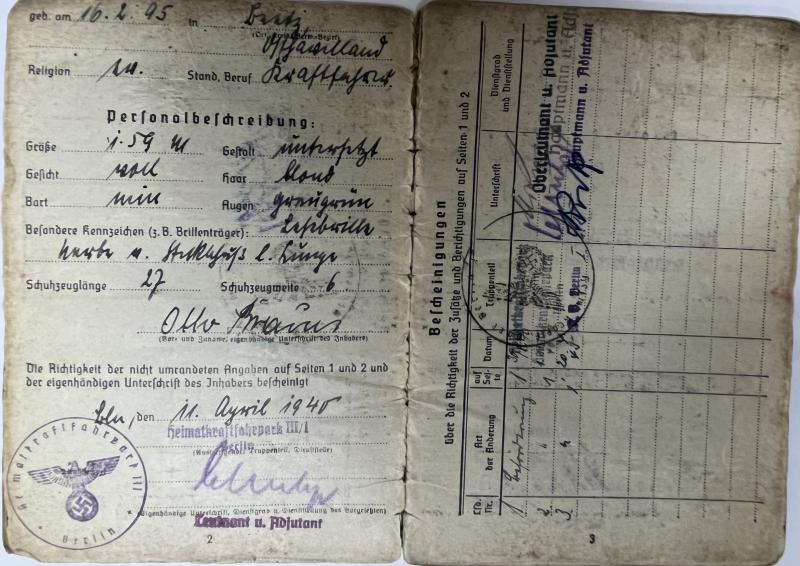 geb. am 16.2.95 in Beetz
(Ort, Kreis, Verw.-Bezirk)
Osthavelland
Religion ev. Stand, Beruf Kraftfahrer
Personalbeschreibung:
Größe 1.59 m Gestalt untersetzt
Gesicht voll Haar blond
Bart nein Augen graugrün
Besondere Kennzeichen (z.B. Brillenträger): Lesebrille
Narbe v. l. Lunge
Schuhzeuglänge 27 Schuhzeugweite 6
Otto
(Vor- und Zuname, eigenhändige Unterschrift des Inhabers)
Die Richtigkeit der nicht umrandeten Angaben auf Seiten 1 und 2 und
der eigenhändigen Unterschrift des Inhabers bescheinigt
Bln, den 11. April 1940
Heimatkraftfahrpark III/1
Berlin
(Ausfertigender Truppenteil, Dienststelle)
(Eigenhändige Unterschrift, Dienstgrad u. Dienststellung des Vorgesetzten)
Leutnant u. Adjutant
Heimatkraftfahrpark III
Berlin
2
Bescheinigungen
über die Richtigkeit der Zusätze und Berichtigungen auf Seiten 1 und 2
Lfd. Nr.
Art der Änderung
auf Seite
Datum
Truppenteil
Unterschrift
Dienstgrad und Dienststellung
1 Beförderung 1
Oberleutnant u. Adjutant
2 " 1
Hauptmann u. Adj
3 " 1
Berlin
Hauptmann u. Adjutant
3